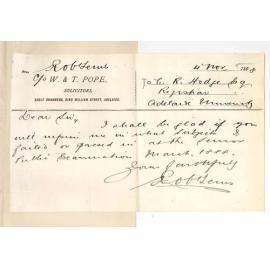 Rob Lewis
C/o W. & T. POPE,
SOLICITORS,
EAGLE CHAMBERS, KING WILLIAM STREET, ADELAIDE.
4 Nov 1888
To C. R. Hodge Esq
Registrar
Adelaide University
Dear Sir,
I shall be glad if you
will inform me in what subjects I
failed or passed in at the Senior
Public Examination March, 1888.
Yours faithfully
Rob Lewis